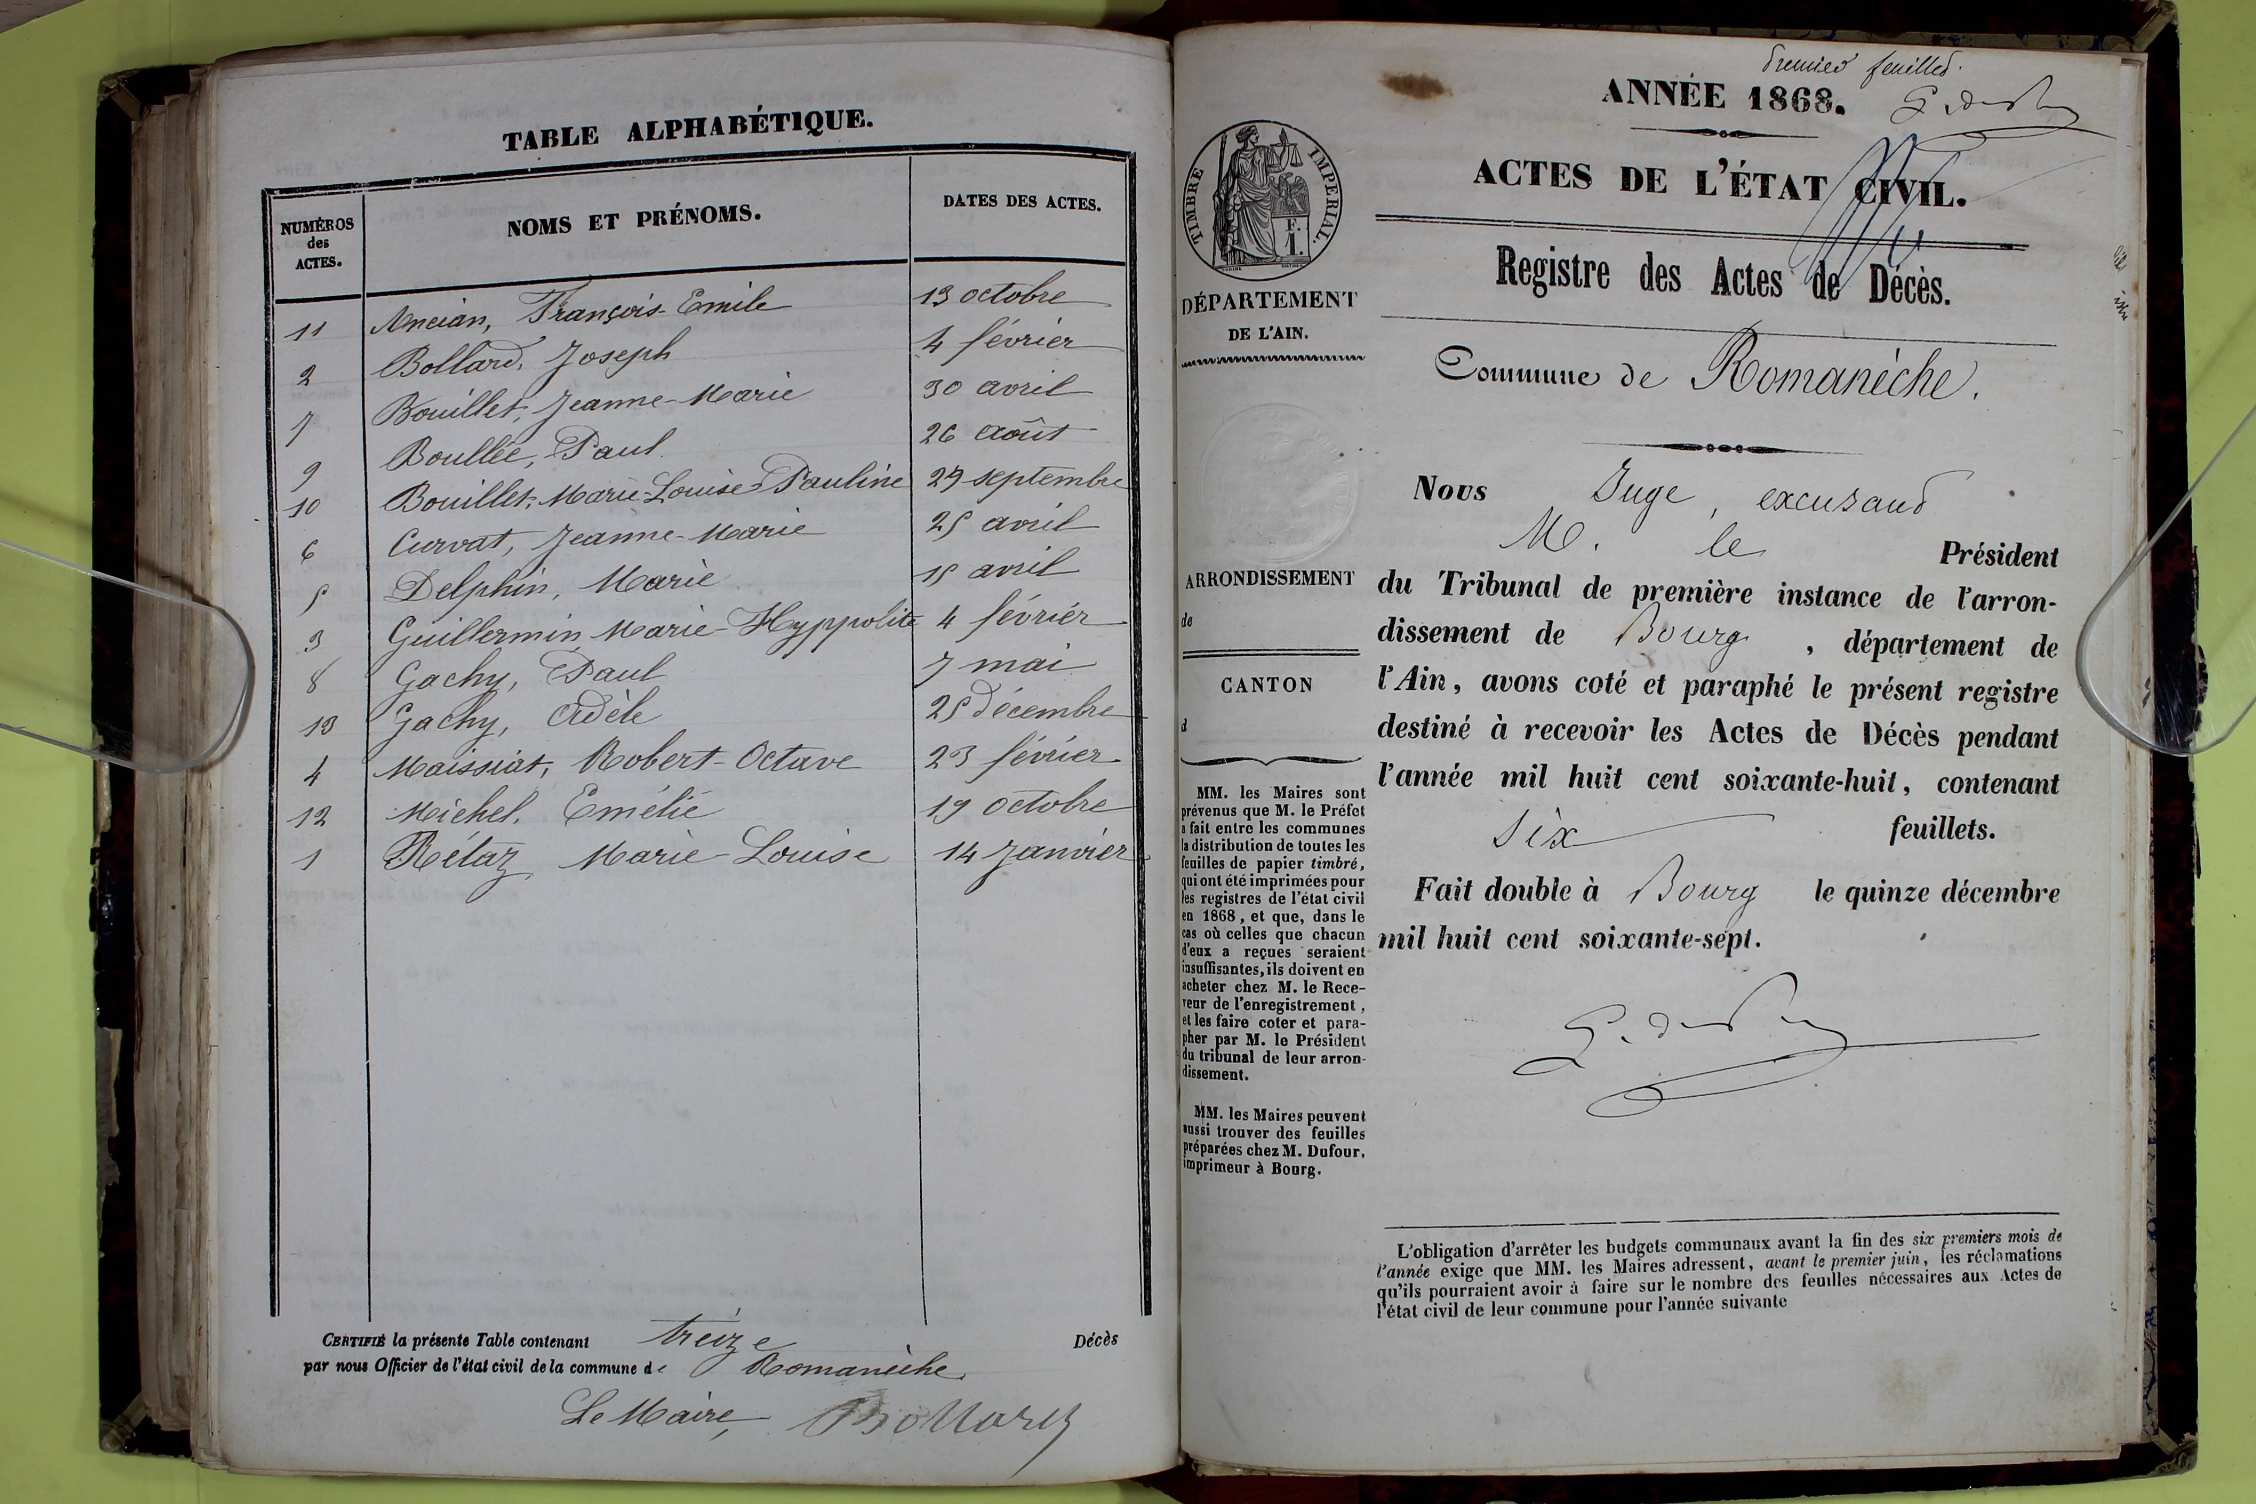 TABLE ALPHABÉTIQUE.
NUMÉROS des ACTES. NOMS ET PRÉNOMS. DATES DES ACTES.
11 Ancian, François-Emile 13 octobre
2 Bollard, Joseph 4 février
7 Bouillet, Jeanne-Marie 30 avril
9 Boullée, Paul 26 août
10 Bouillet, Marie-Louise-Pauline 29 septembre
6 Curvat, Jeanne-Marie 25 avril
5 Delphin, Marie 15 avril
3 Guillermin, Marie-Hyppolite 4 février
8 Gachy, Paul 7 mai
13 Gachy, Adèle 25 décembre
4 Maissiat, Robert-Octave 23 février
12 Michel, Emélie 19 octobre
1 Rétaz, Marie-Louise 14 Janvier
CERTIFIÉ la présente Table contenant treize Décès
par nous Officier de l'état civil de la commune de Romanèche.
Le Maire, Bollard
premier feuillet.
ANNÉE 1868.
ACTES DE L'ÉTAT CIVIL.
Registre des Actes de Décès.
Commune de Romanèche.
TIMBRE IMPERIAL.
F.
1.
DÉPARTEMENT
DE L'AIN.
ARRONDISSEMENT
de
CANTON
d
MM. les Maires sont
prévenus que M. le Préfet
a fait entre les communes
la distribution de toutes les
feuilles de papier timbré,
qui ont été imprimées pour
les registres de l'état civil
en 1868, et que, dans le
cas où celles que chacun
d'eux a reçues seraient
insuffisantes, ils doivent en
acheter chez M. le Rece-
veur de l'enregistrement,
et les faire coter et para-
pher par M. le Président
du tribunal de leur arron-
dissement.
MM. les Maires peuvent
aussi trouver des feuilles
préparées chez M. Dufour,
imprimeur à Bourg.
Nous Juge, excusant
M. le Président
du Tribunal de première instance de l'arron-
dissement de Bourg, département de
l'Ain, avons coté et paraphé le présent registre
destiné à recevoir les Actes de Décès pendant
l'année mil huit cent soixante-huit, contenant
six feuillets.
Fait double à Bourg le quinze décembre
mil huit cent soixante-sept.
L'obligation d'arrêter les budgets communaux avant la fin des six premiers mois de
l'année exige que MM. les Maires adressent, avant le premier juin, les réclamations
qu'ils pourraient avoir à faire sur le nombre des feuilles nécessaires aux Actes de
l'état civil de leur commune pour l'année suivante